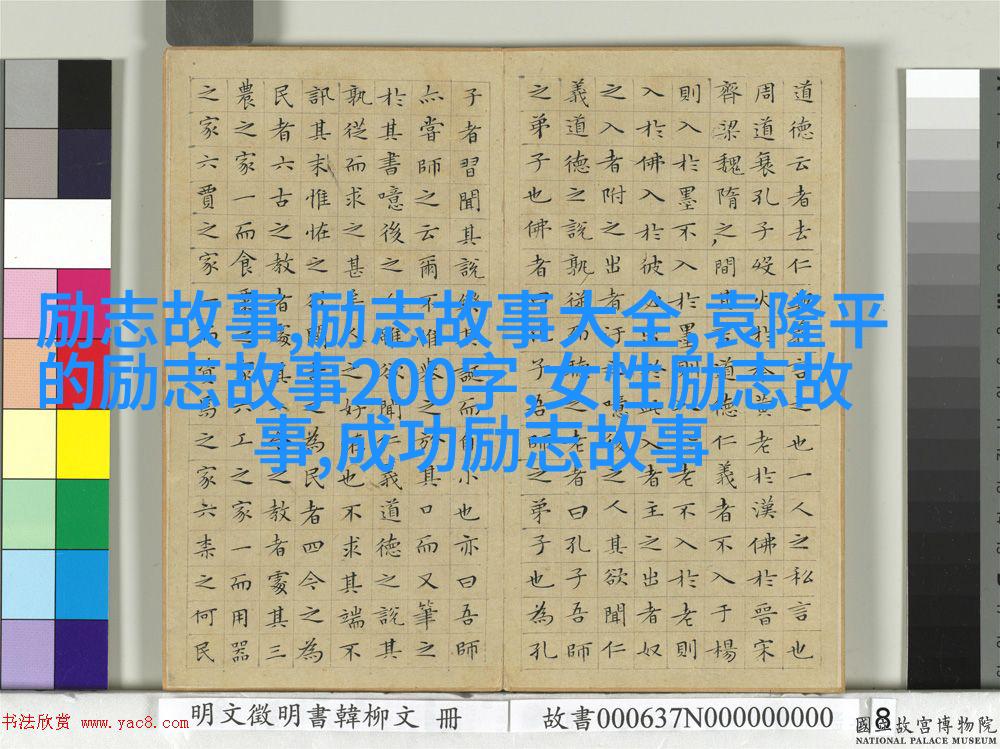 励志故事,励志故事大全,袁隆平
的励志故事200字,女性励志故
事,成功励志故事
道德云者去仁義言之也一人之私言也
周道衰孔子歿火於黃老於漢佛於晉宋
齊梁魏隋之間其言道德仁義者不入于楊
則入於墨不入於墨則老不入於老則
入於佛入於彼入者主之出者奴
之入者附之出者汙噫後之人其欲聞仁
義道德之說孰從而之老者曰孔子吾師
之弟子也佛者曰子吾師之弟子也為孔
子者習聞其說其誕而小也亦曰吾師
亦嘗師之云爾不惟之於其口而又筆之
於其書噫後之雖欲聞仁義道德之說其
孰從而求之甚人之好也不求其端不
訊其末惟怪之聞為民者四今之為
民者六古之教者處其之教者處其三
農之家一而食粟之六工之家一而用器
之家六賈之家而資焉之家六柰之何民
明文徵明書韓柳文 冊
故書000637N000000000
8
書法欣赏 www.yac8.com
國立故宮博物院
NATIONAL PALACE MUSEUM